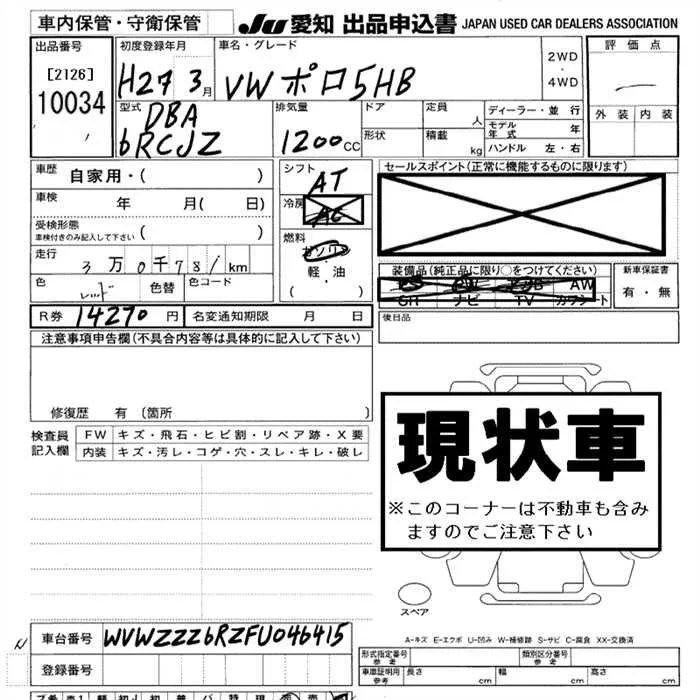 車内保管・守衛保管
JU 愛知 出品申込書 JAPAN USED CAR DEALERS ASSOCIATION
出品番号
[2126]
10034
初度登録年月
H27 3月
車名・グレード
VW ポロ 5HB
2WD
・
4WD
評価点
外装 内装
型式
DBA
6RCJZ
排気量
1200cc
ドア
形状
定員
人
積載
kg
ディーラー・並行
モデル年式 年
ハンドル 左・右
車歴
自家用・( )
車検 年 月( 日)
受検形態
車検付きのみ記入して下さい ( )
走行 3万0千781km
色 レッド 色替 色コード
シフト
AT
冷房
AC
燃料
ガソリン
・
軽・油
( )
セールスポイント(正常に機能するものに限ります)
装備品(純正品に限り○をつけてください)
PS PW エアB AW
SR ナビ TV カワシート
新車保証書
有・無
R券 14270円
名変通知期限 月 日
後日品
注意事項申告欄(不具合内容等は具体的に記入して下さい)
修復歴 有 〔箇所 〕
検査員
記入欄
FW キズ・飛石・ヒビ割・リペア跡・X要
内装 キズ・汚レ・コゲ・穴・スレ・キレ・破レ
現状車
※このコーナーは不動車も含み
ますのでご注意下さい
スペア
A-キズ E-エクボ U-凹み W-補修跡 S-サビ C-腐食 XX-交換済
車台番号 WVWZZZ6RZFU046415
登録番号
形式指定番号
参考
類別区分番号
参考
車庫証明用
参考
長さ cm 幅 cm 高さ cm